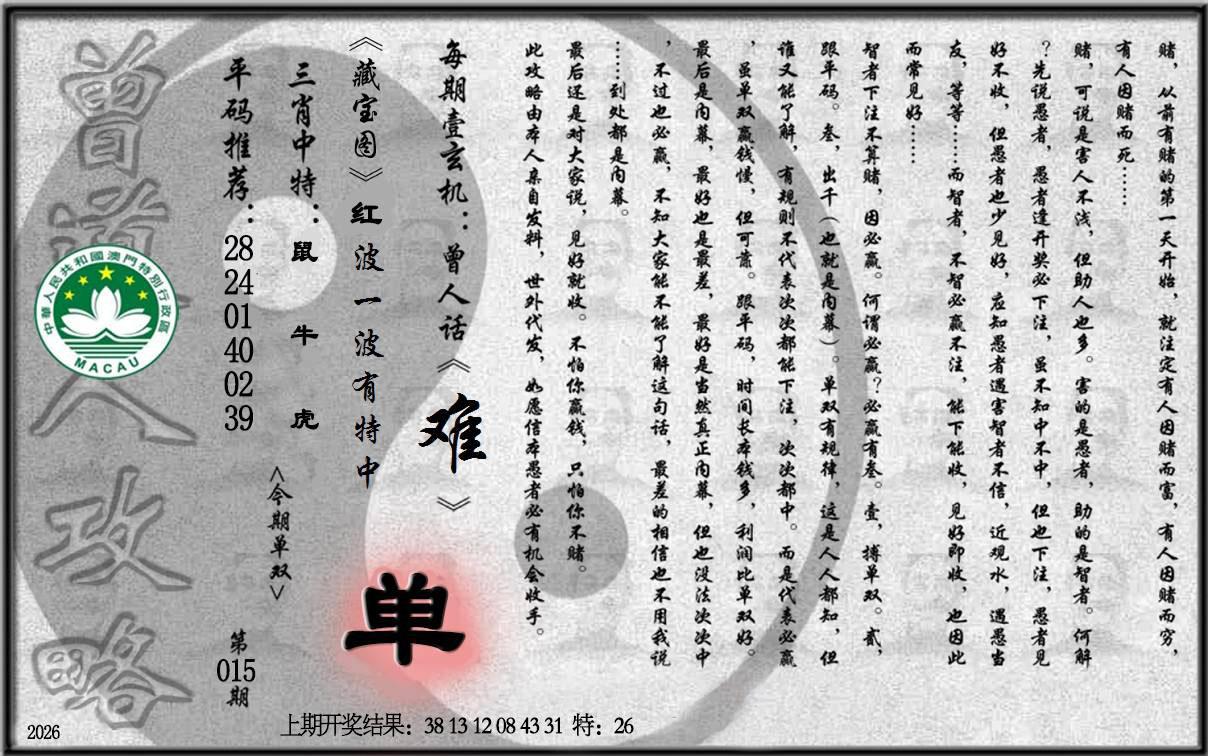 赌，从前有赌的第一天开始，就注定有人因赌而富，有人因赌而穷，
有人因赌而死……
赌，可说是害人不浅，但助人也多。害的是愚者，助的是智者。何解
？先说愚者，愚者逢开奖必下注，虽不知中不中，但也下注，愚者见
好不收，但愚者也少见好，应知愚者遇害智者不信，近观水，遇愚当
友，等等……而智者，不智必赢不注，能下能收，见好即收，也因此
而常见好……
智者下注不算赌，因必赢。何谓必赢？必赢有叁。壹，搏单双。贰，
跟平码。叁，出千（也就是内幕）。单双有规律，这是人人都知，但
谁又能了解，有规则不代表次次都能下注，次次都中。而是代表必赢
，虽单双赢钱慢，但可靠。跟平码，时间长本钱多，利润比单双好。
最后是内幕，最好也是最差，最好是当然真正内幕，但也没法次次中
，不过也必赢，不知大家能不能了解这句话，最差的相信也不用我说
……到处都是内幕。
最后还是对大家说，见好就收。不怕你赢钱，只怕你不赌。
此攻略由本人亲自发料，世外代发，如愿信本愚者必有机会收手。
每期壹玄机：曾人话《难》
《藏宝图》红波一波有特中
单
三肖中特：鼠牛虎
<今期单双>
平码推荐：28 24 01 40 02 39
第015期
曾道人攻略
中華人民共和國澳門特別行政區
MACAU
上期开奖结果：38 13 12 08 43 31 特：26
2026